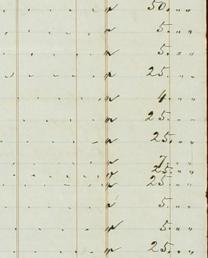 50. " "
5. " "
5. " "
25. " "
4. " "
25. " "
25. " "
7. " "
25. " "
25. " "
5. " "
5. " "
25. " "